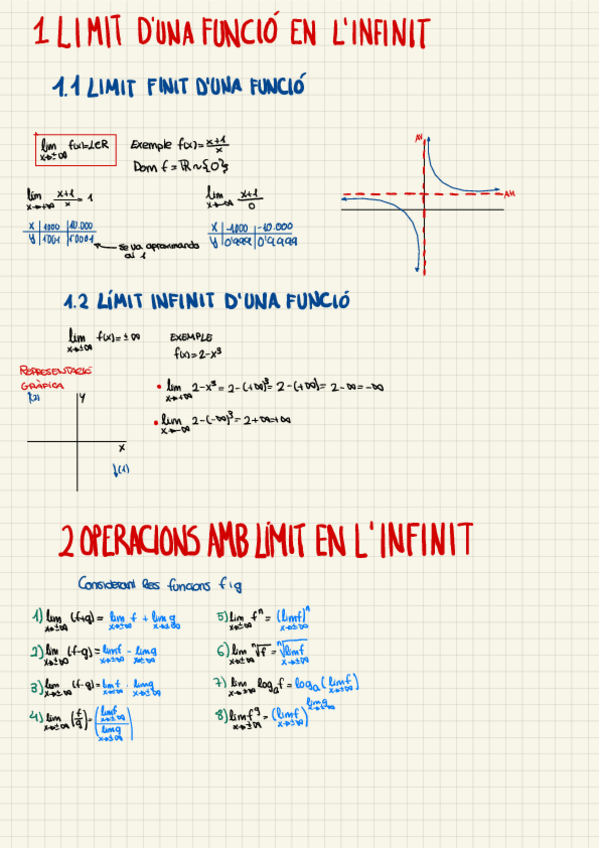 1 LIMIT D'UNA FUNCIÓ EN L'INFINIT
1.1 LIMIT FINIT D'UNA FUNCIÓ
lim x→±∞ f(x)=L∈R
Exemple f(x)= x+1/x
Dom f = R ~ {0}
lim x→+∞ x+1/x = 1
lim x→-∞ x+1/0
x | 1000 | 10.000
y | 1'001 | 1'0001
se va aproximando al 1
x | -1000 | -10.000
y | 0'999 | 0'9999
AV
AH
1.2 LÍMIT INFINIT D'UNA FUNCIÓ
lim x→±∞ f(x)=±∞
EXEMPLE
f(x)=2-x³
REPRESENTACIÓ
GRÀFICA
(2)
y
x
(1)
• lim x→+∞ 2-x³=2-(+∞)³=2-(+∞)=2-∞=-∞
• lim x→-∞ 2-(-∞)³=2+∞=+∞
2 OPERACIONS AMB LÍMIT EN L'INFINIT
Considerant les funcions f i g
1) lim x→±∞ (f+g)= lim x→±∞ f + lim x→±∞ g
2) lim x→±∞ (f-g)= lim x→±∞ f - lim x→±∞ g
3) lim x→±∞ (f·g)= lim x→±∞ f · lim x→±∞ g
4) lim x→±∞ (f/g)= (lim x→±∞ f / lim x→±∞ g)
5) lim x→±∞ fⁿ = (lim x→±∞ f)ⁿ
6) lim x→±∞ ⁿ√f = ⁿ√lim x→±∞ f
7) lim x→±∞ logₐf = logₐ(lim x→±∞ f)
8) lim x→±∞ f^g = (lim x→±∞ f)^lim x→±∞ g